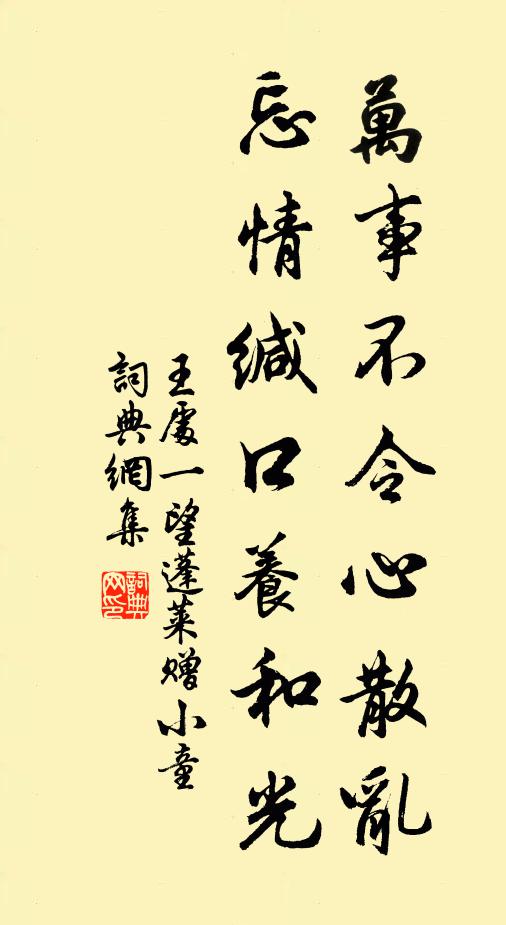 萬事不令心散亂
忘情緘口養和光
王處一望蓬萊贈小童
詞典網集
詞典網印